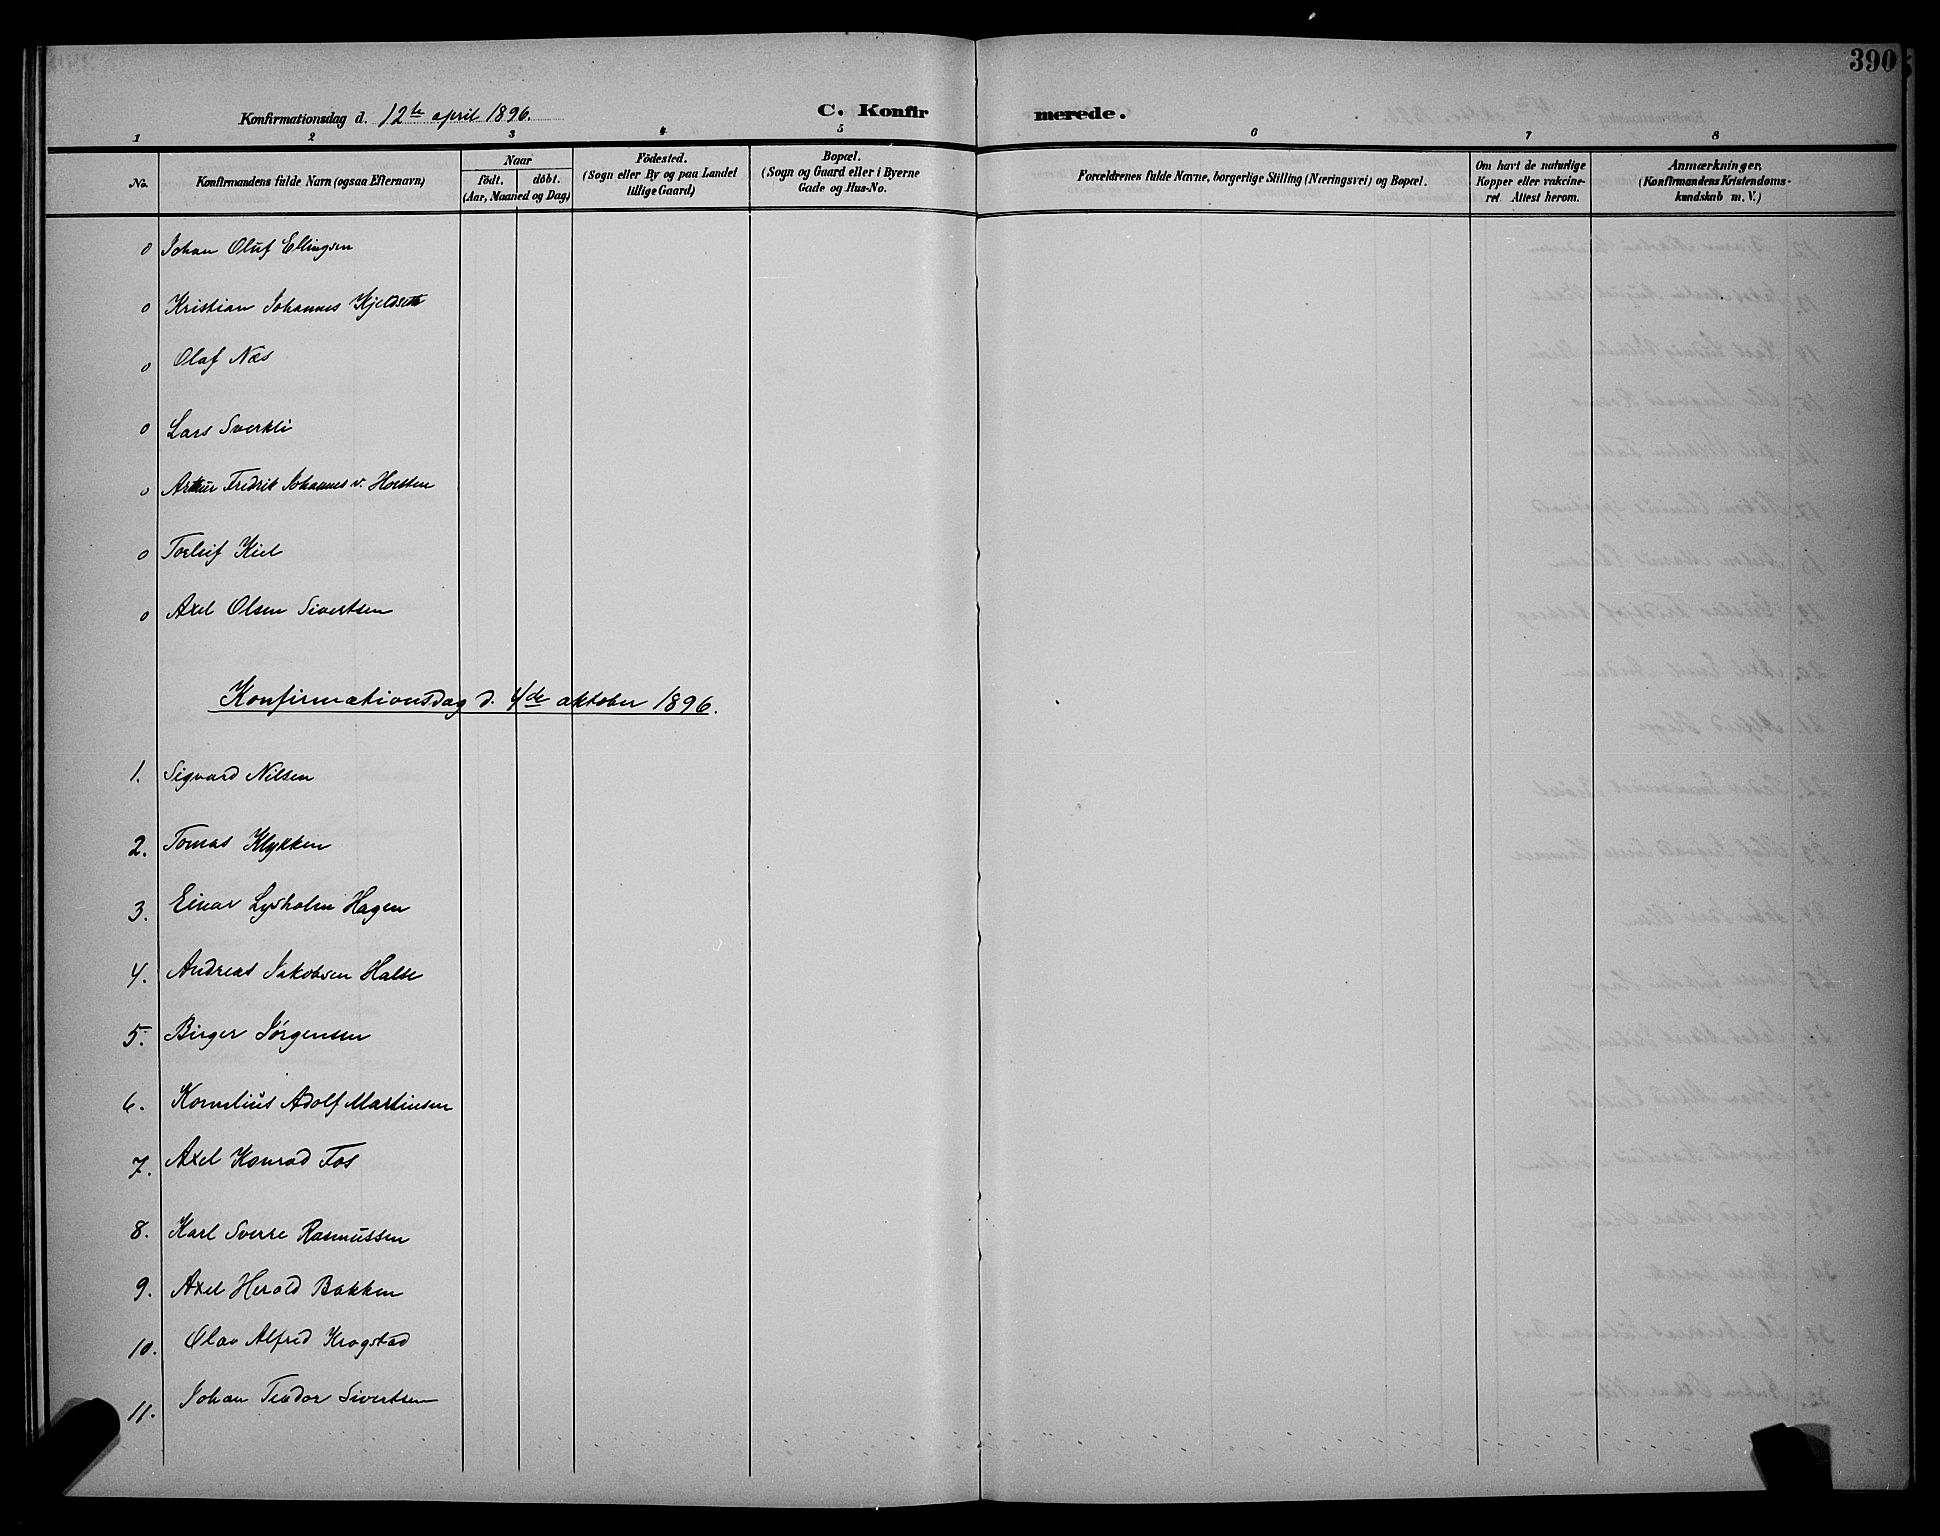 390
Konfirmationsdag d. 12te april 1896.
C. Konfirmerede.
1 2 3 4 5 6 7 8
No.
Konfirmandens fulde Navn (ogsaa Efternavn)
Naar
födt. döbt.
(Aar, Maaned og Dag)
Födested.
(Sogn eller By og paa Landet
tillige Gaard)
Bopæl.
(Sogn og Gaard eller i Byerne
Gade og Hus-No.
Forældrenes fulde Navne, borgerlige Stilling (Næringsvei) og Bopæl.
Om havt de naturlige
Kopper eller vakcine-
ret. Attest herom.
Anmærkninger,
(Konfirmandens Kristendoms-
kundskab m. V.)
0 Johan Oluf Ellingsen
0 Kristian Johannes Kjeldseth
0 Olaf Næs
0 Lars Sverkli
0 Arthur Fredrik Johannes v. Horsten
0 Torleif Kiel
0 Axel Olsen Sivertsen
Konfirmationsdag d. 4de oktober 1896.
1. Sigvard Nilsen
2. Tomas Klykken
3. Einar Lysholm Hagen
4. Andreas Jakobsen Halse
5. Birger Jörgensen
6. Kornelius Adolf Martinsen
7. Axel Konrad Fos
8. Karl Sverre Rasmussen
9. Axel Herold Bakken
10. Olav Alfred Krogstad
11. Johan Teodor Sivertsen